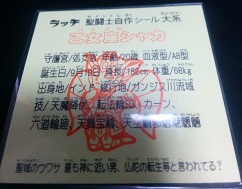 ラッチ 聖闘士自作シール大系
乙女座シャカ
守護宮/処女宮 年齢/20歳 血液型/AB型
誕生日/9月19日 身長/182cm 体重/68kg
出身地/インド 修行地/ガンジス川流域
技/天魔降伏、転法輪印、カーン、
六道輪廻、天空覇邪
聖域のウワサ 最も神に近い男、仏陀の転生等と言われてる?